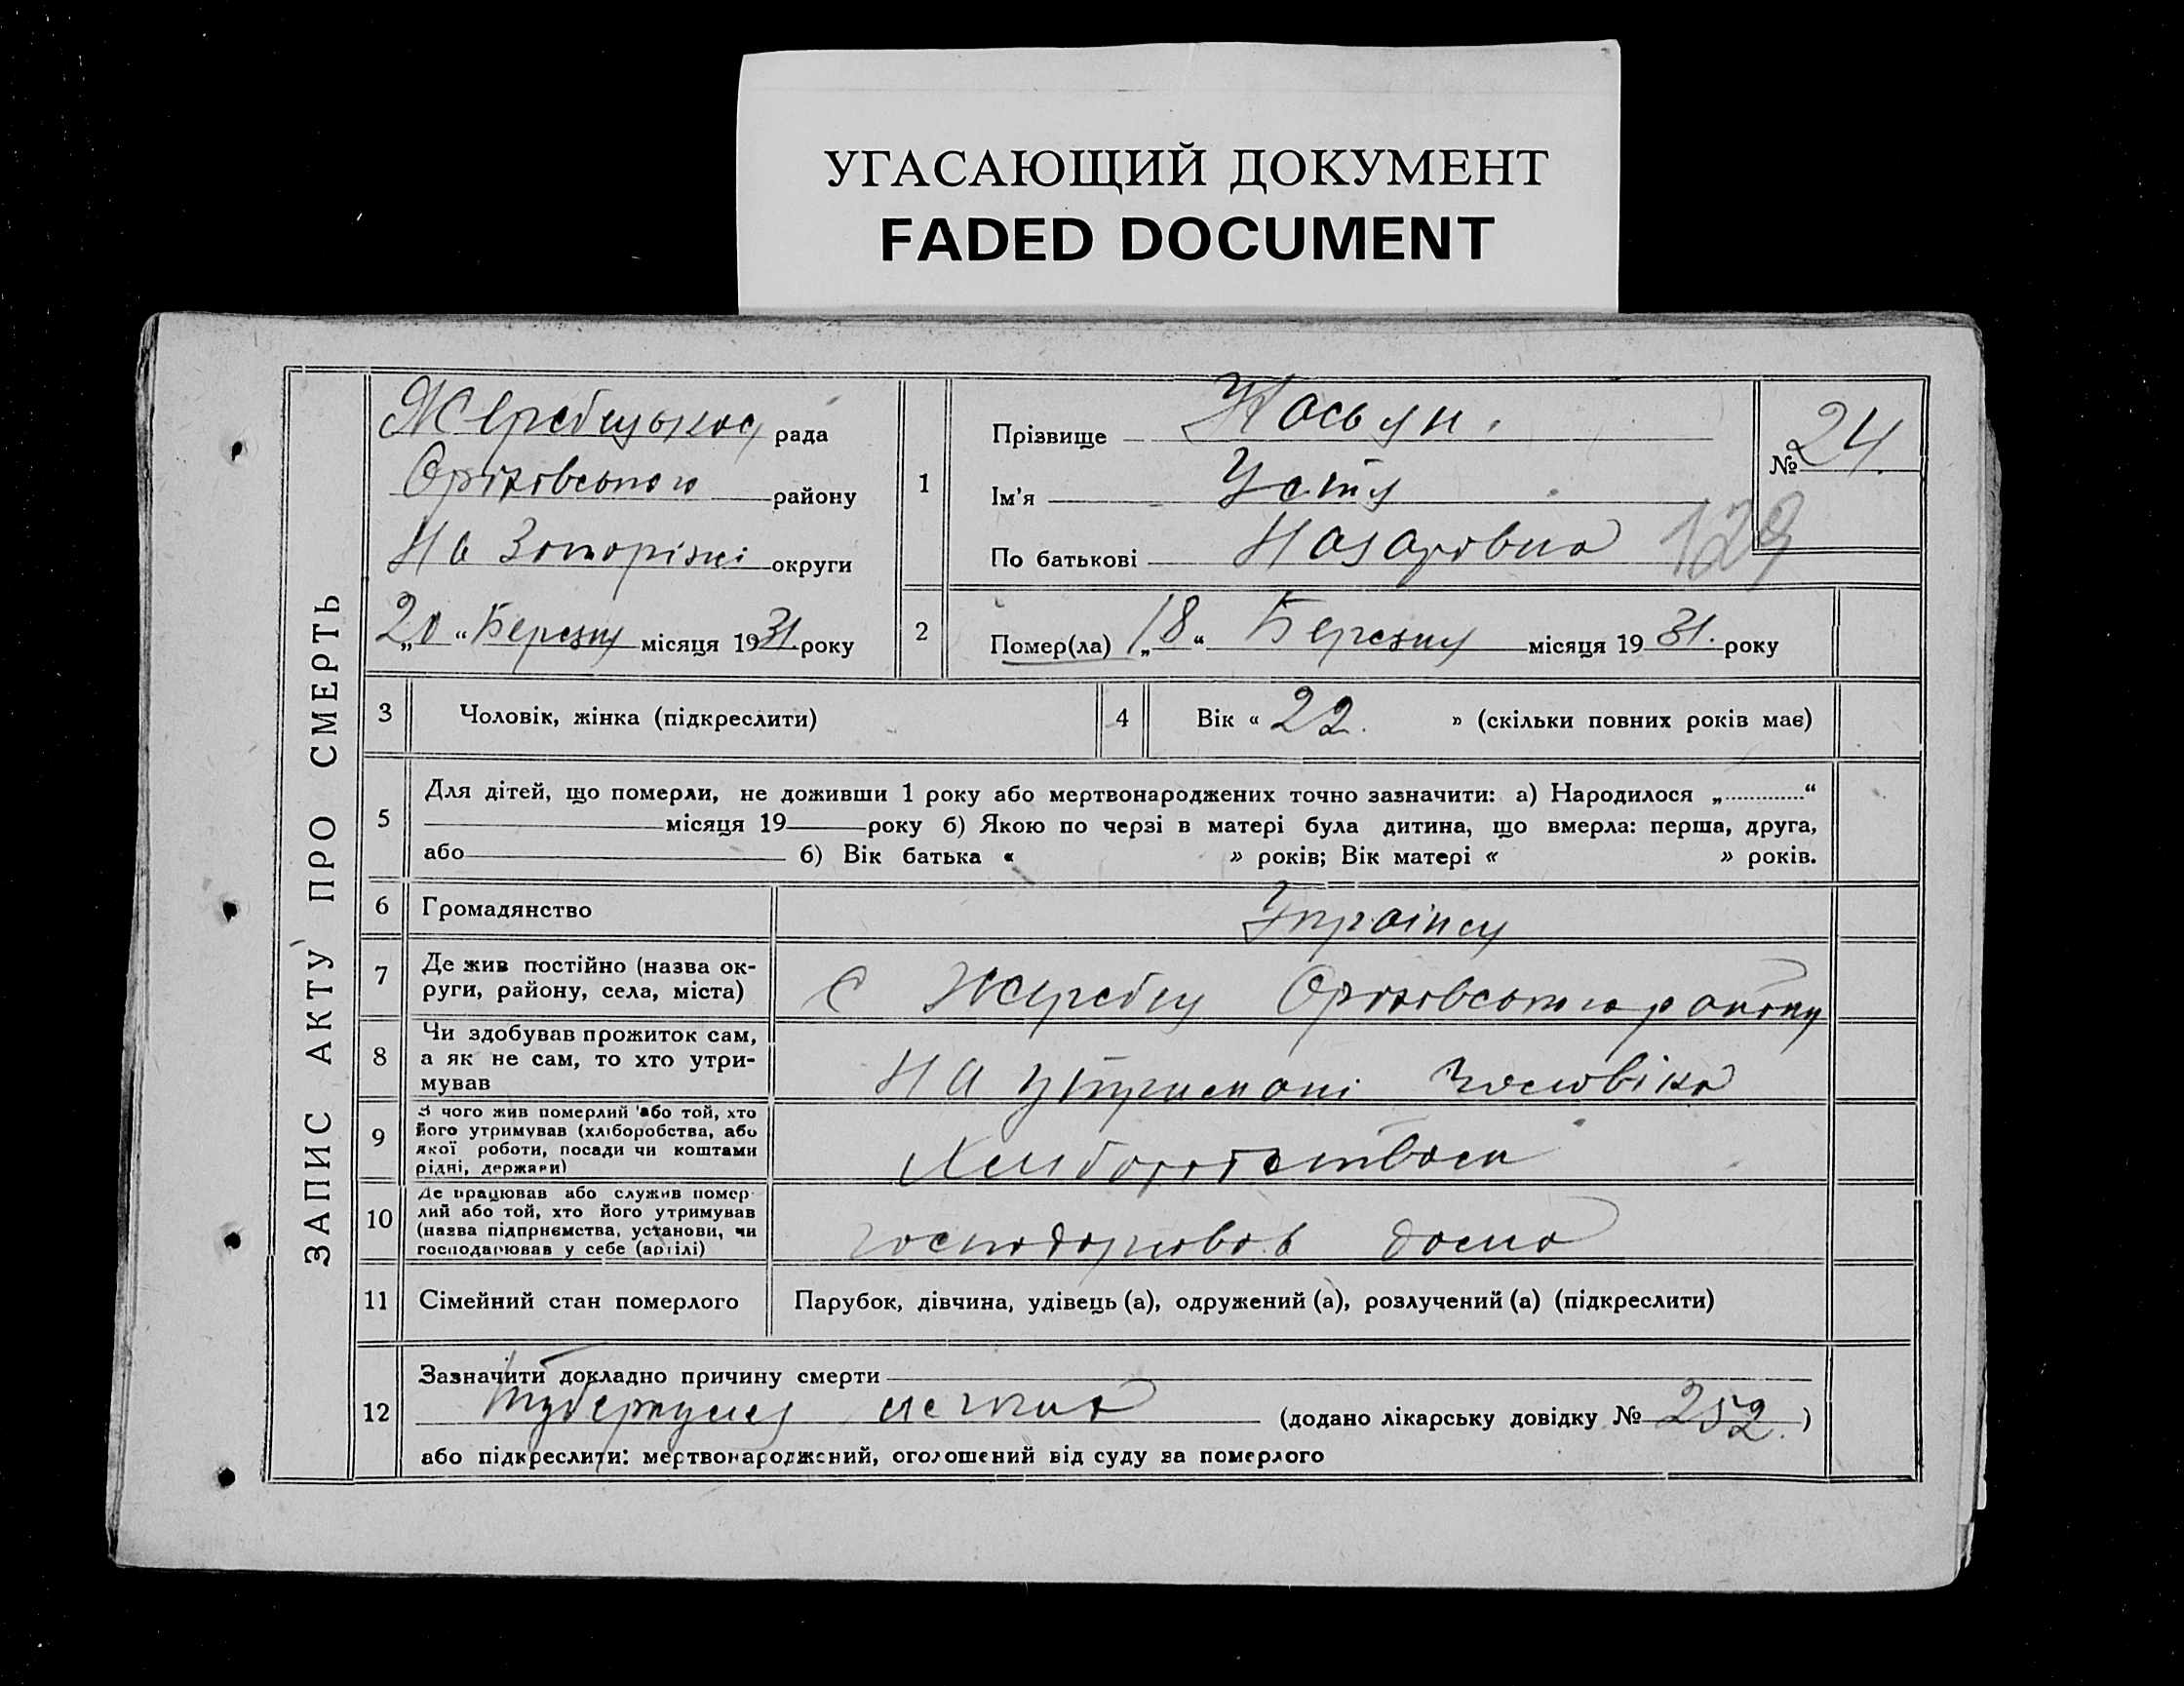 УГАСАЮЩИЙ ДОКУМЕНТ
FADED DOCUMENT
ЗАПИС АКТУ ПРО СМЕРТЬ
Жеребецька рада
Оріхівського району
На Запоріжі округи
„20“ Березня місяця 1931 року
1
Прізвище
Ім'я Устя
По батькові Назаровна
№ 24
129
2
Помер(ла) „18“ Березня місяця 1931. року
3 Чоловік, жінка (підкреслити)
4 Вік « 22. » (скільки повних років має)
5 Для дітей, що померли, не доживши 1 року або мертвонароджених точно зазначити: а) Народилося „ “
місяця 19 року б) Якою по черзі в матері була дитина, що вмерла: перша, друга,
або б) Вік батька « » років; Вік матері « » років.
6 Громадянство
7 Де жив постійно (назва ок-
руги, району, села, міста)
с Жеребец Оріхівського району
8 Чи здобував прожиток сам,
а як не сам, то хто утри-
мував
На утримані чоловіка
9 З чого жив померлий або той, хто
його утримував (хліборобства, або
якої роботи, посади чи коштами
рідні, держави)
10 Де працював або служив помер-
лий або той, хто його утримував
(назва підприємства, установи, чи
господарював у себе (артілі)
господарював дома
11 Сімейний стан померлого
Парубок, дівчина, удівець (а), одружений (а), розлучений (а) (підкреслити)
12 Зазначити докладно причину смерти
(додано лікарську довідку № 252.)
або підкреслити: мертвонароджений, оголошений від суду за померлого